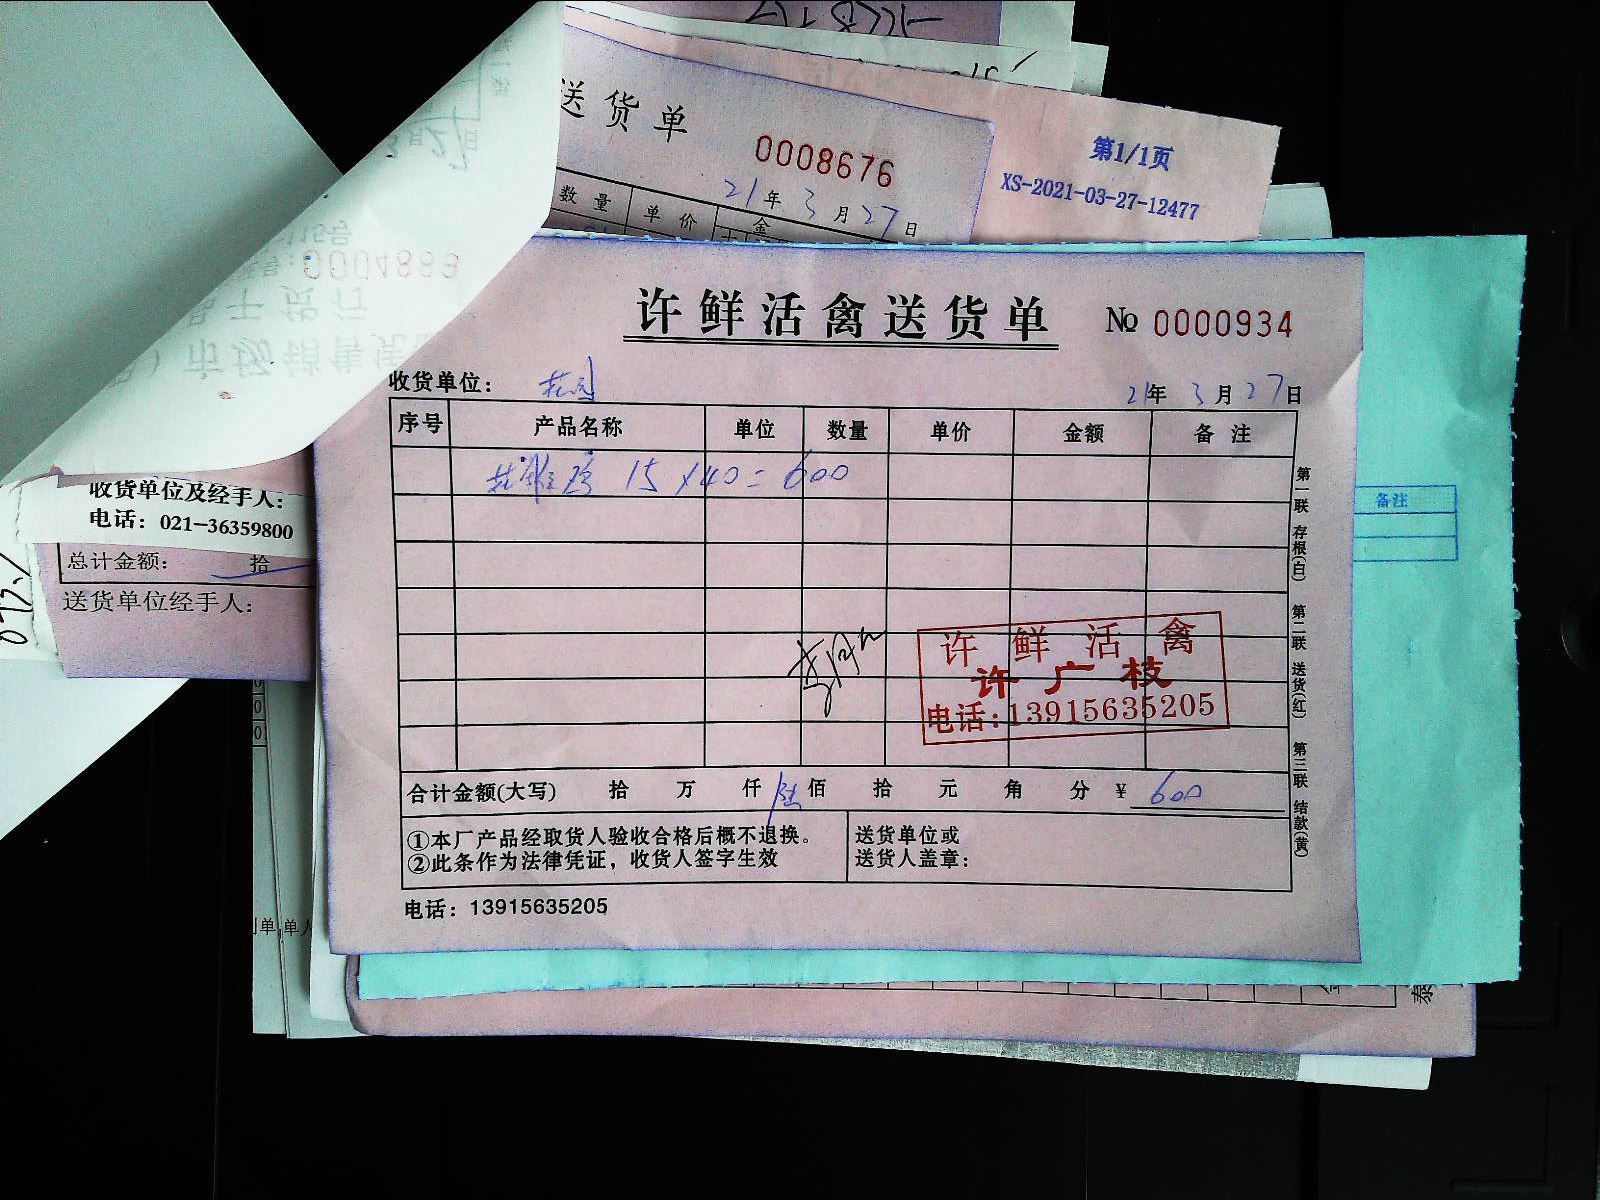 送货单
0008676
21年3月27日
数量 单价 金
第1/1页
XS-2021-03-27-12477
0004883
市场销售凭
许鲜活禽送货单 No 0000934
收货单位：
21年3月27日
序号 产品名称 单位 数量 单价 金额 备注
15×40=600
许鲜活禽
许广枝
电话:13915635205
合计金额(大写) 拾 万 仟 陆佰 拾 元 角 分 ¥ 600
①本厂产品经取货人验收合格后概不退换。
②此条作为法律凭证，收货人签字生效
送货单位或
送货人盖章：
电话：13915635205
第一联 存根(白) 第二联 送货(红) 第三联 结款(黄)
备注
收货单位及经手人：
电话：021-36359800
总计金额： 拾
送货单位经手人：
单
泰